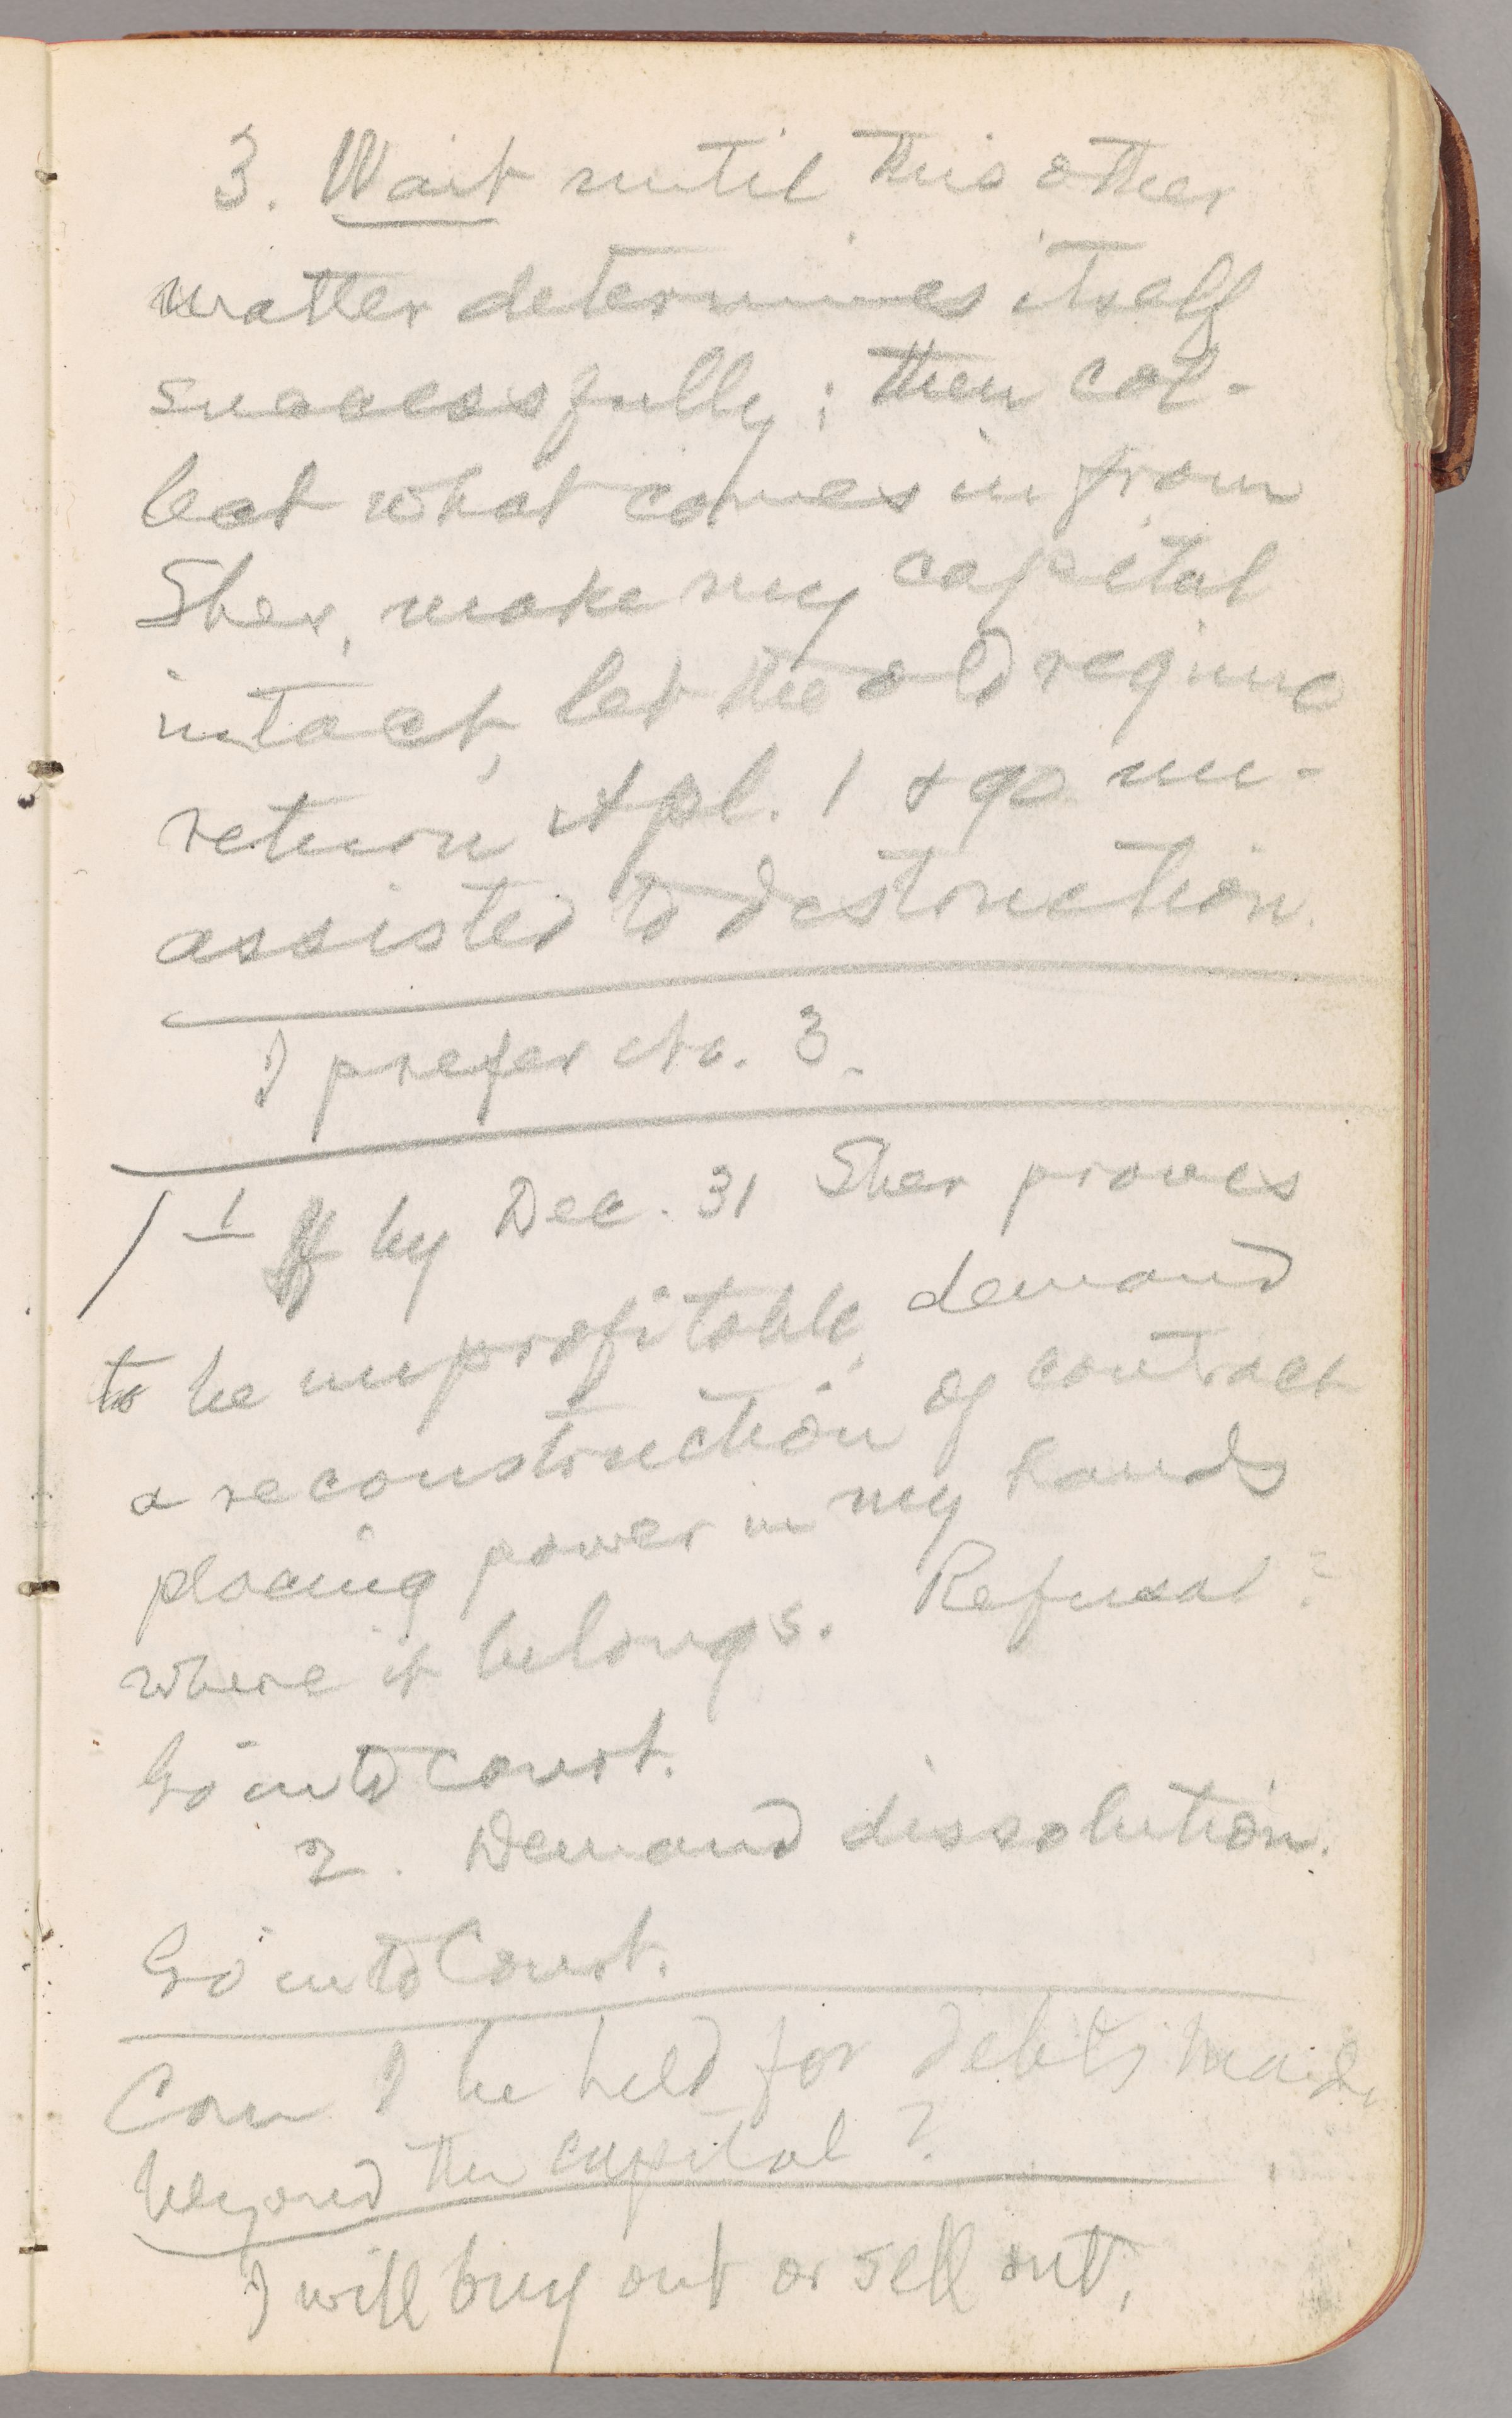 3. Wait until this other
matter determines itself
successfully; then col-
lect what comes in from
Sher, make my capital
intact, let the old regime
return Apl. 1 & go un-
assisted to destruction.
I prefer No. 3.
1 If by Dec. 31 Sher proves
to be unprofitable, demand
a reconstruction of contract
placing power in my hands
where it belongs. Refusal:
Go into court.
2. Demand dissolution.
Go into Court.
Can I be held for debts made
beyond the capital?
I will buy out or sell out.